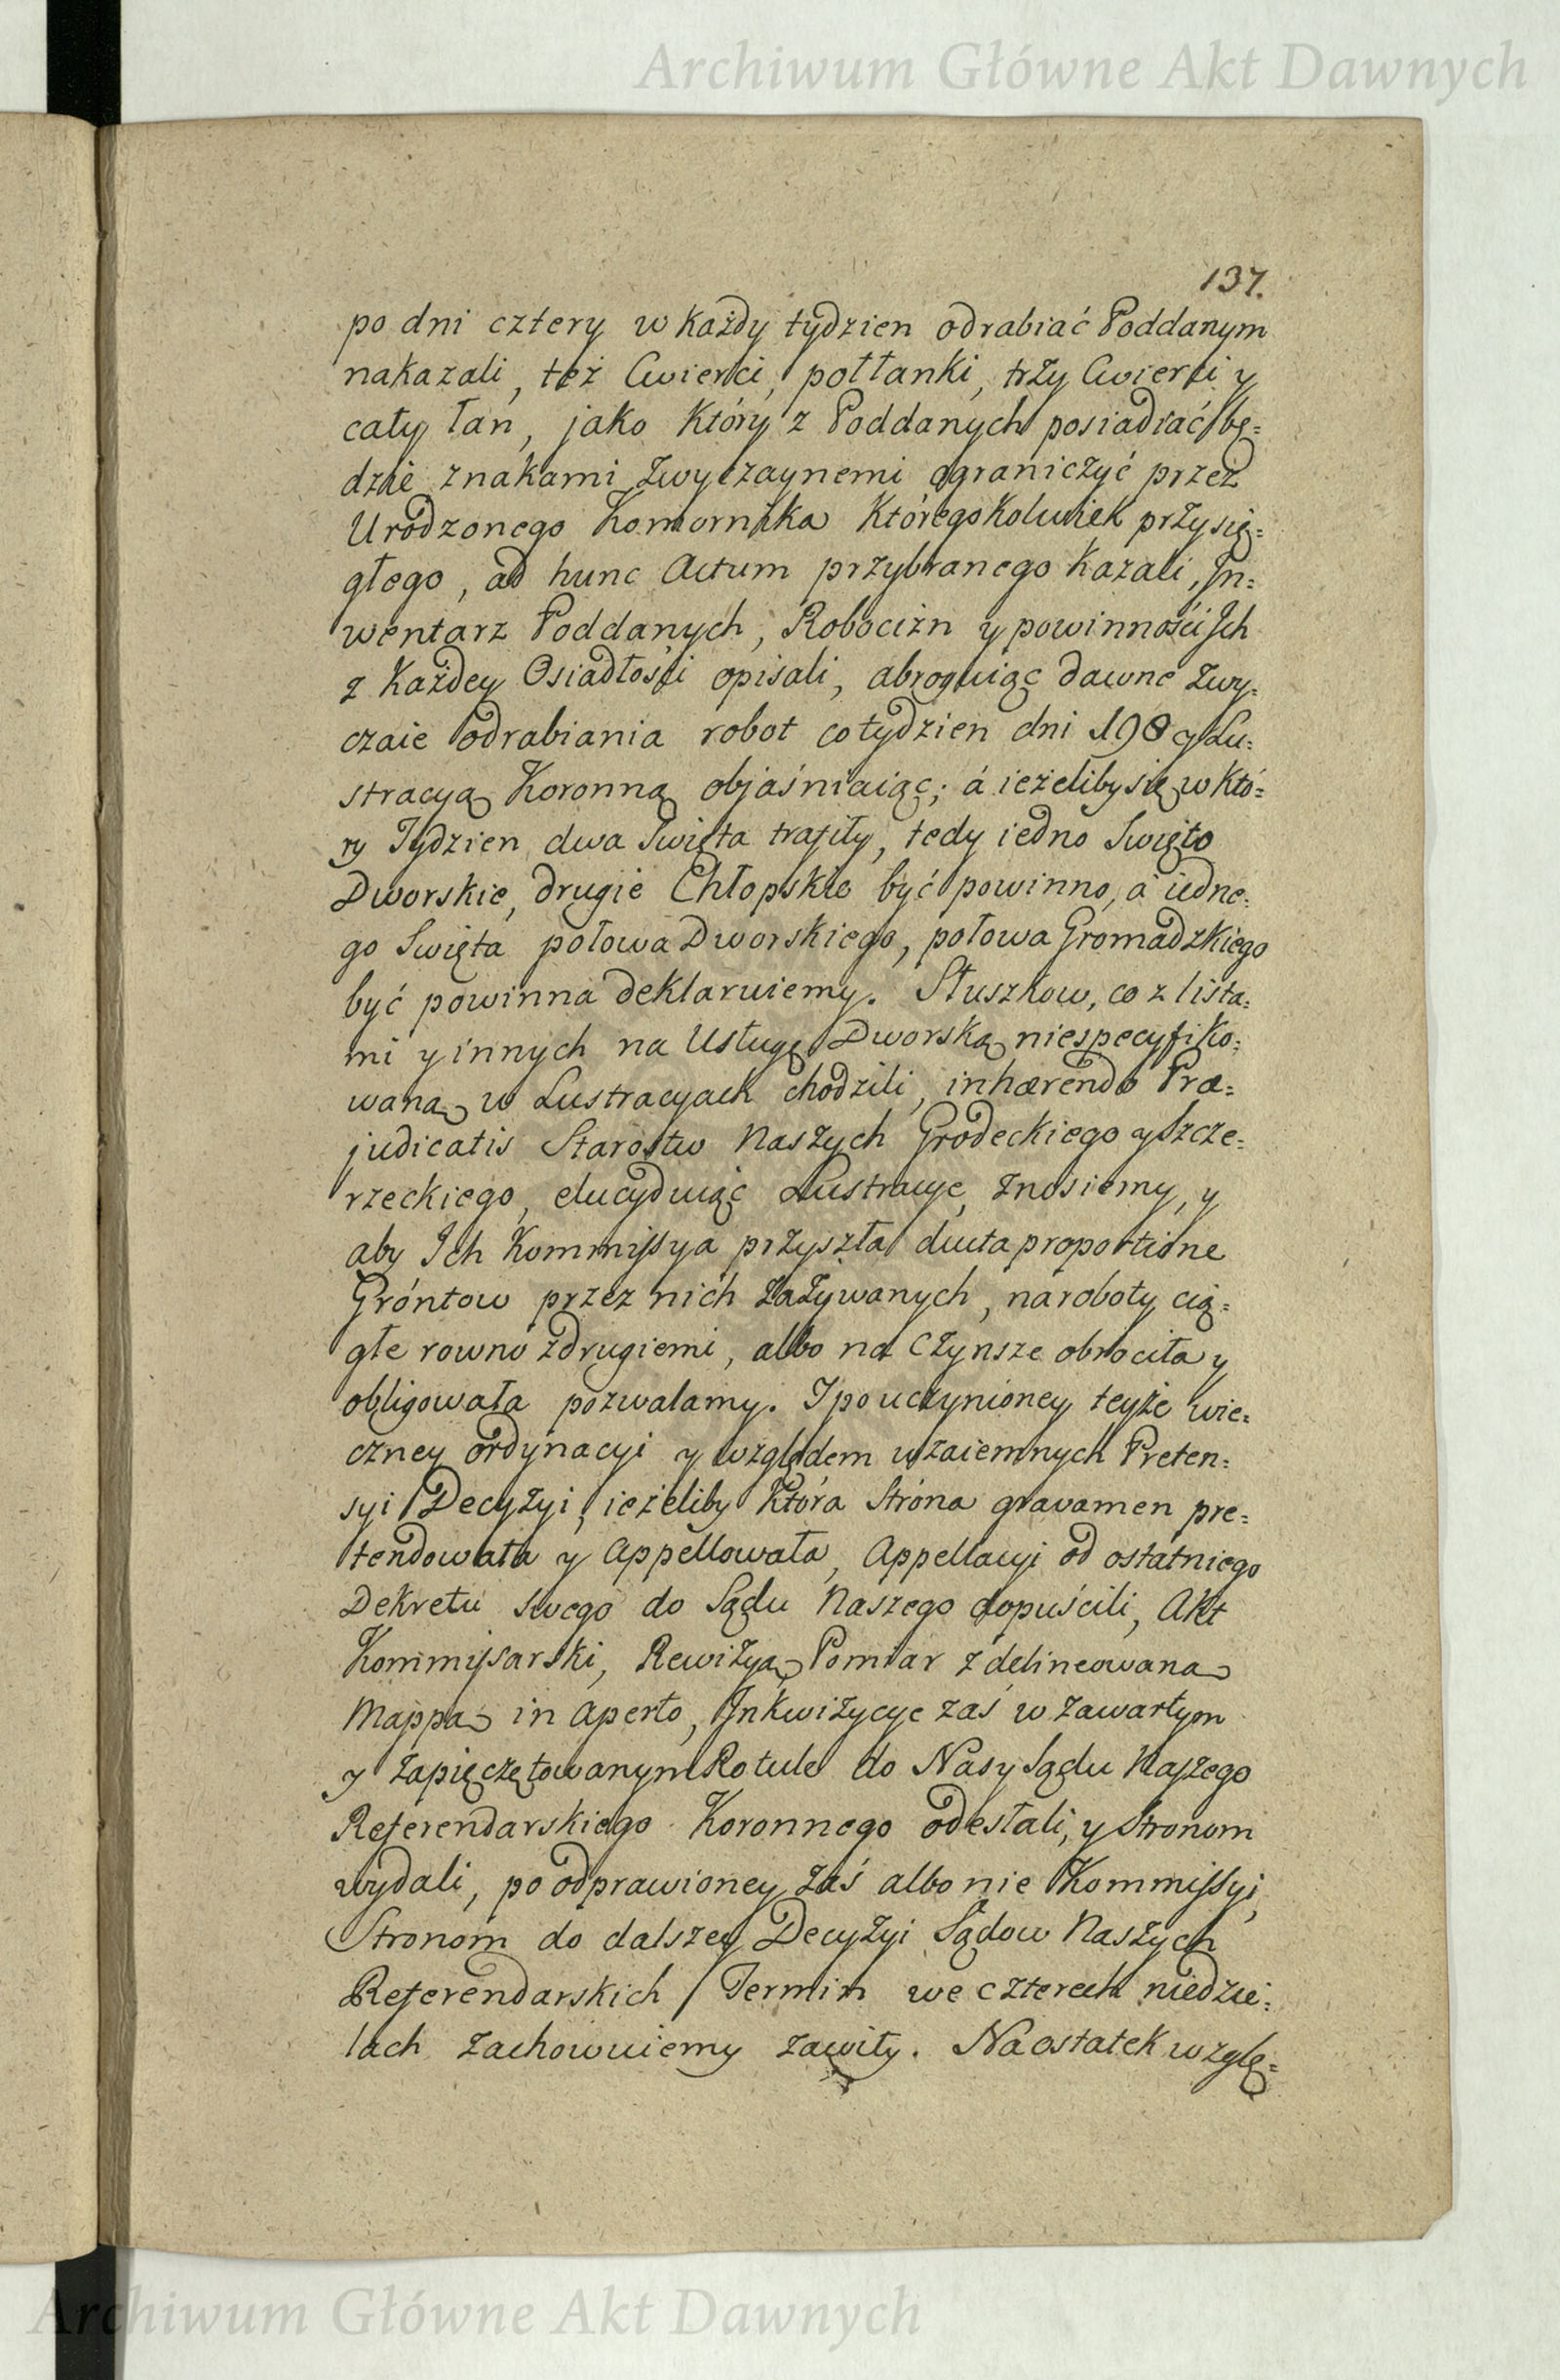 Archiwum Główne Akt Dawnych
137.
po dni cztery w każdy tydzien odrabiać Poddanym
nakazali, też Cwierci, połłanki, trzy Cwierci y
cały łan, jako który z Poddanych posiadać bę=
dzie znakami zwyczaynemi ograniczyć przez
Urodzonego Komornika któregokolwiek przysię=
głego, ad hunc Actum przybranego kazali, In=
wentarz Poddanych, Robocizn y powinności Ich
z każdey Osiadłości opisali, abroguiąc dawne zwy=
czaie odrabiania robot co tydzien dni y Lu=
stracyą Koronną objaśniaiąc; á ieżeliby się w któ=
ry Tydzien dwa Swięta trafiły, tedy iedno Swięto
Dworskie, drugie Chłopskie być powinno, á iedne=
go Swięta połowa Dworskiego, połowa Gromadzkiego
być powinna deklaruiemy. Słuszkow, co z lista=
mi y innych na Usługę Dworską niespecyfiko=
waną w Lustracyach chodzili, inhærendo Præ=
judicatis Starostw Naszych Grodeckiego y Szcze=
rzeckiego, elucyduiąc Lustracye, znosiemy, y
aby Ich Kommissya przyszła ducta proportione
Gróntow przez nich zażywanych, na roboty cią=
głe rowno z drugiemi, albo na Czynsze obrociła y
obligowała pozwalamy. I po uczynioney teyże wie=
czney ordynacyi y względem wzaiemnych Preten=
syi Decyzyi, ieżeliby która Strona gravamen pre=
tendowała y Appellowała, Appellacyi od ostatniego
Dekretu swego do Sądu Naszego dopuścili, Akt
Kommissarski, Rewizyą, Pomiar z delineowaną
Mappą in Aperto, Inkwizycye zaś w zawartym
y zapięczętowanym Rotule do Nas y Sądu Naszego
Referendarskiego Koronnego odesłali, y Stronom
wydali, po odprawioney zaś albo nie Kommissyi,
Stronom do dalszey Decyzyi Sądow Naszych
Referendarskich Termin we czterech niedzie=
lach zachowuiemy zawity. Na ostatek wzglę=
Archiwum Główne Akt Dawnych